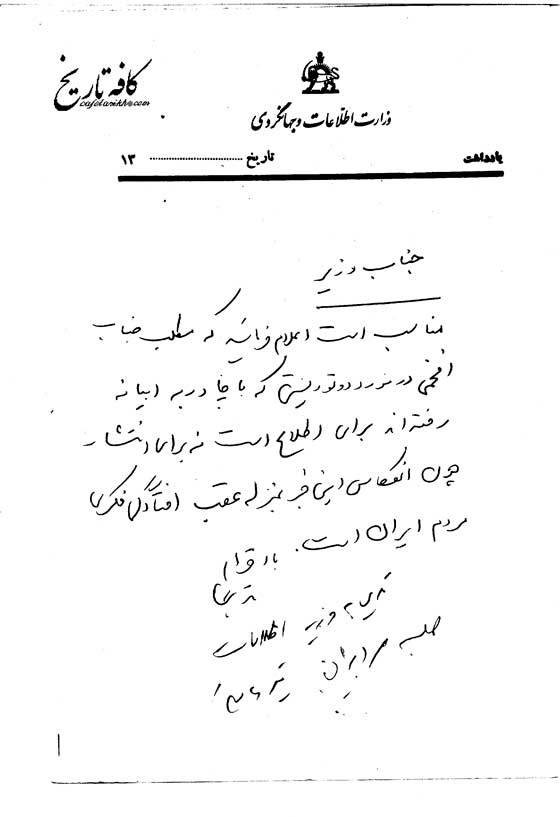 کافه تاریخ
cafetarikh.com
وزارت اطّلاعات و جهانگردی
یادداشت
تاریخ .............................. ۱۳
جناب وزیر
مناسب است اعلام فرمائید که مطلب جناب
افخمی در مورد دو توریستی که با چادر به ابیانه
رفته‌اند برای اطلاع است نه برای انتشار
چون انعکاس این خبر بمنزله عقب افتادگی فکری
مردم ایران است. با احترام
وزیر اطلاعات
ایران